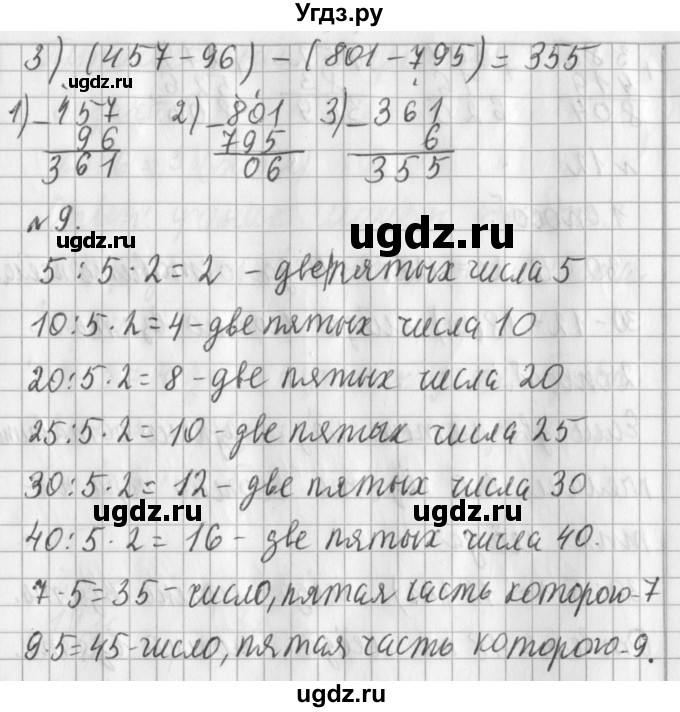 Угдз.ру
3) (457-96) - (801-795) = 355
ugdz.ru
1) -457 2) -801 3) -361
96 795 6
361 06 355
ugdz.ru
№9.
ugdz.ru
5:5·2=2 - две пятых числа 5
10:5·2=4 - две пятых числа 10
20:5·2=8 - две пятых числа 20
ugdz.ru
25:5·2=10 - две пятых числа 25
30:5·2=12 - две пятых числа 30
ugdz.ru
ugdz.ru
40:5·2=16 - две пятых числа 40.
7·5=35 - число, пятая часть которого - 7
9·5=45 - число, пятая часть которого - 9.
ugdz.ru